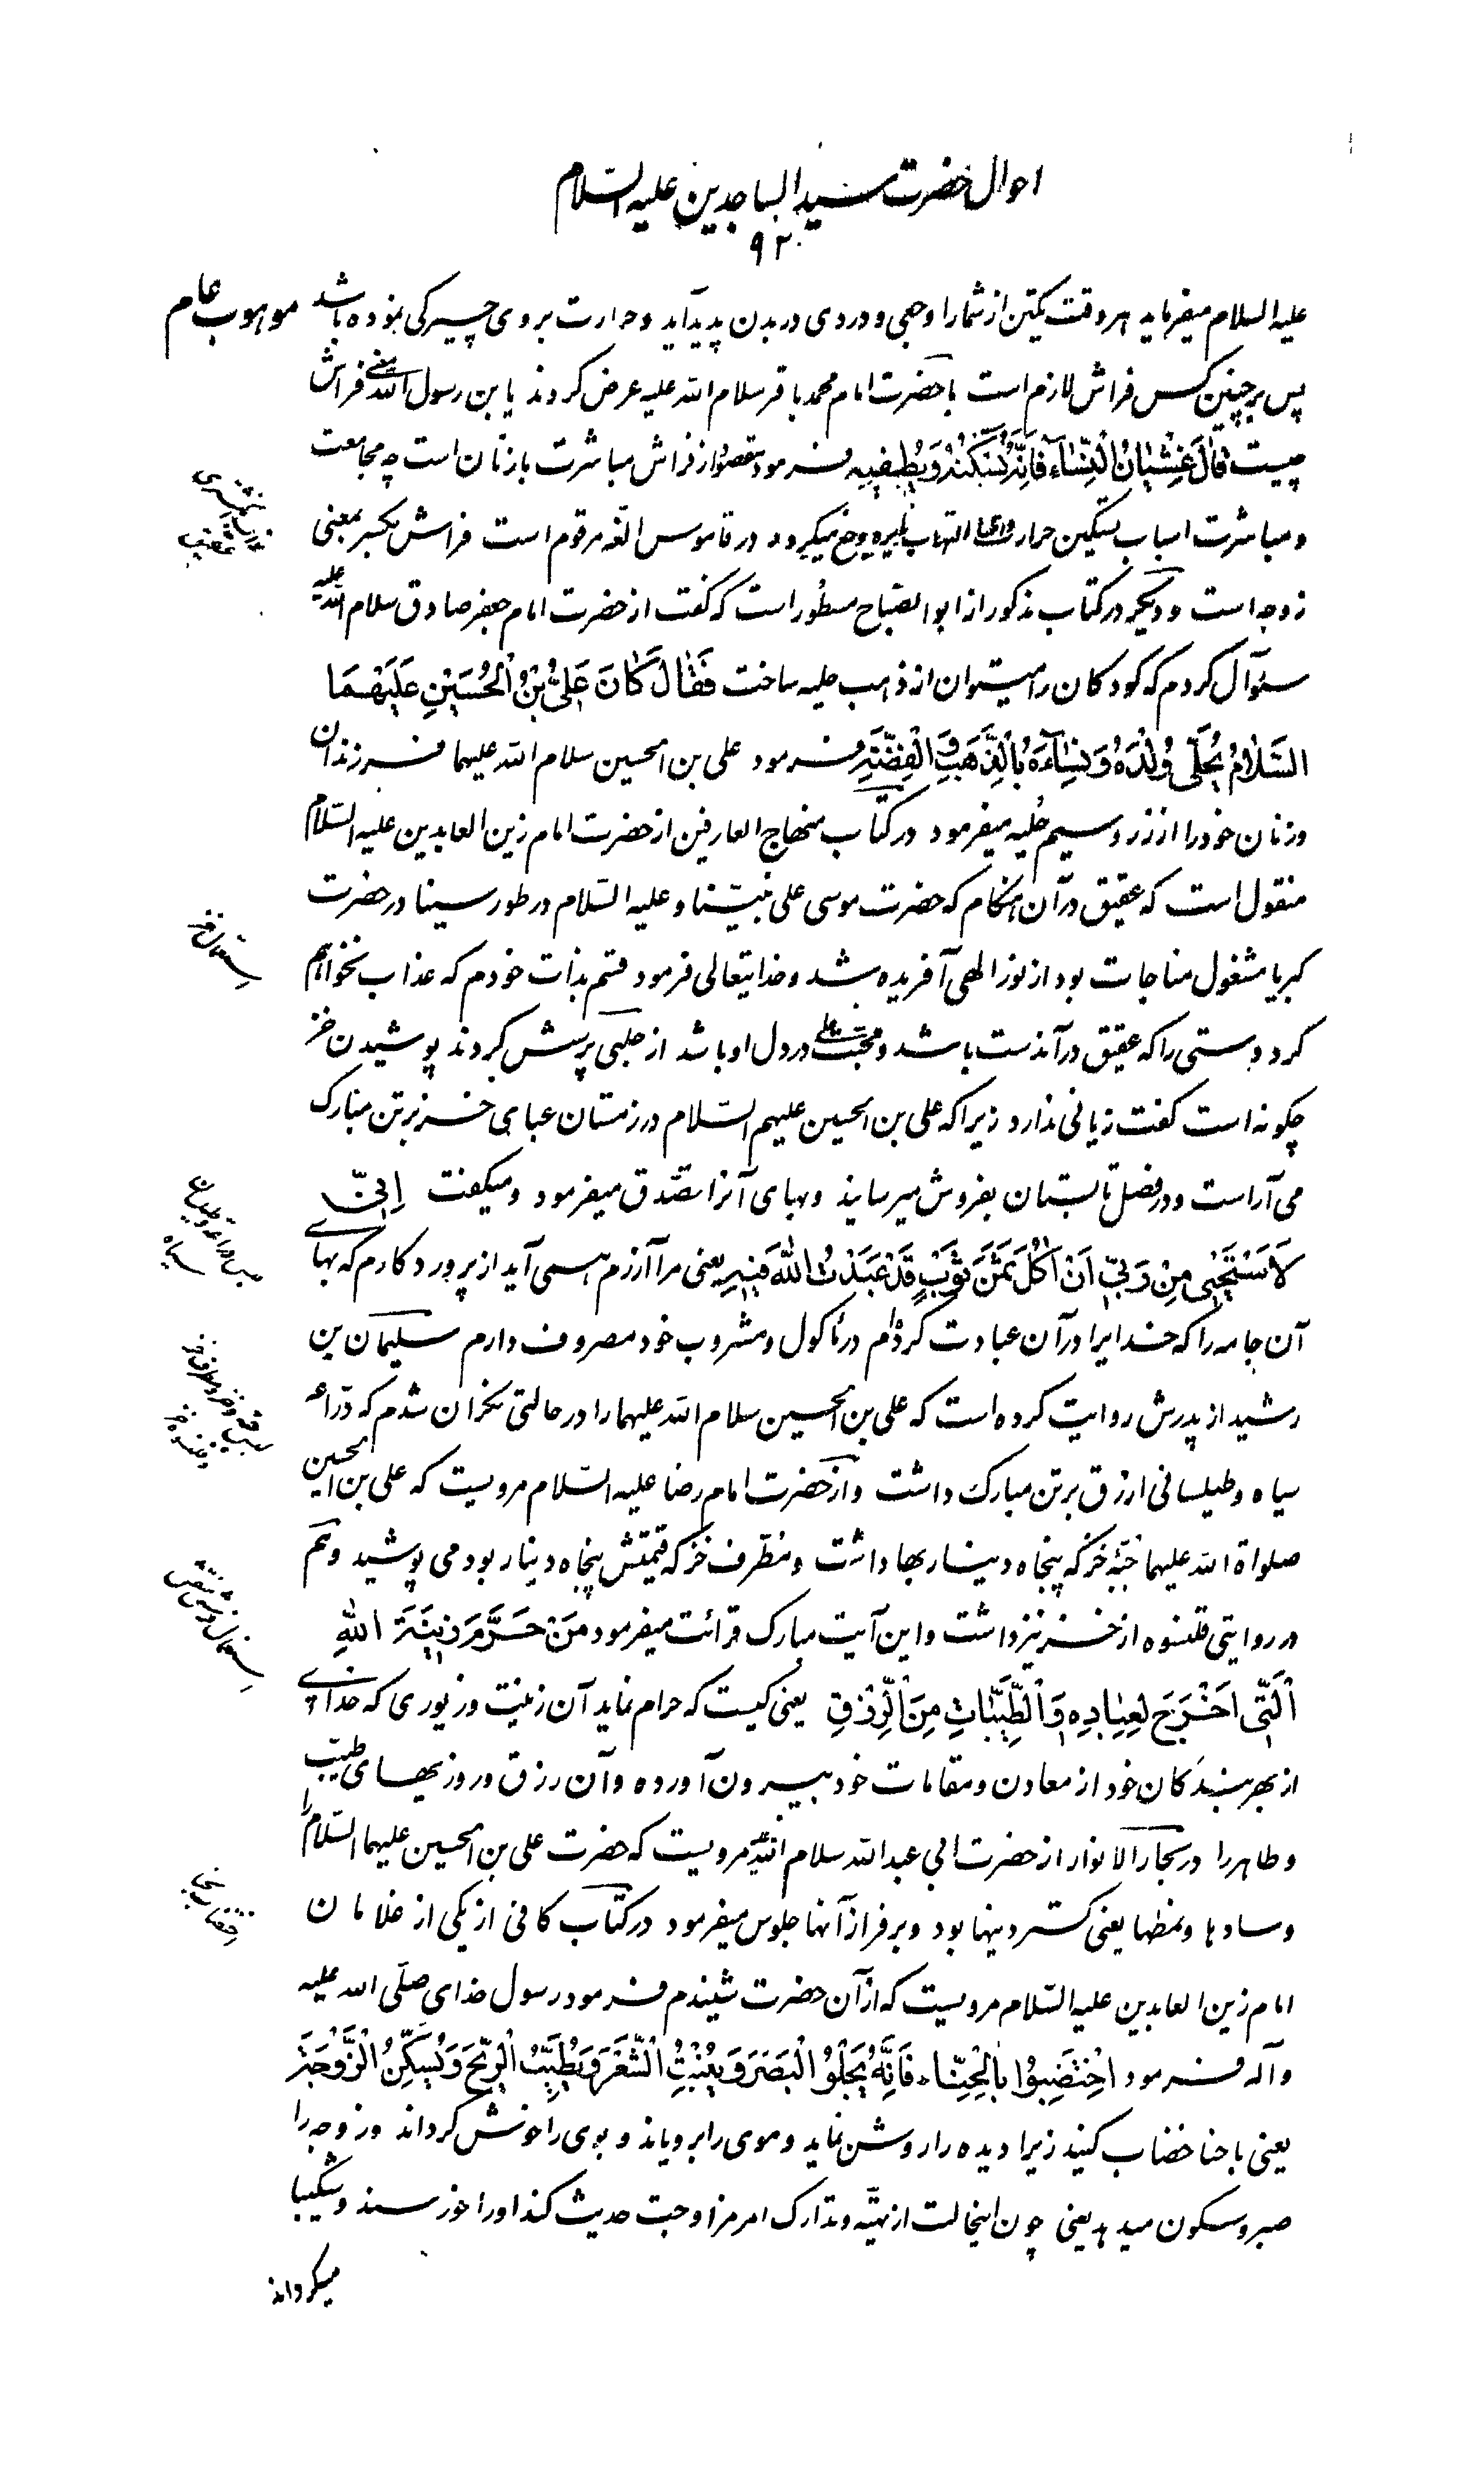 احوال حضرت سید الساجدین علیه السّلام
۹۲۰
علیه السلام میفرماید هر وقت یکتن از شما را وجعی و دردی در بدن پدید آید و حرارت بروی چیرگی نموده باشد موهوب عام
پس بر چنین کس فراش لازم است با حضرت امام محمد باقر سلام الله علیه عرض کردند یا بن رسول الله معنی فراش
چیست قالَ غِشْیانُ النِّسآءِ فَاِنَّهُ یُسَکِّنُهُ وَیُطْفِیهِ فرمود مقصود از فراش مباشرت با زنان است چه مجامعت
و مباشرت اسباب تسکین حرارت و اطفا التهاب میگردد در قاموس اللّغه مرقوم است فراش بکسر بمعنی
زوجه است و دیگر در کتاب مذکور از ابو الصّباح مسطور است که گفت از حضرت امام جعفر صادق سلام الله علیه
سئوال کردم که کودکان را میتوان از ذهب حلیه ساخت فَقالَ کانَ عَلِیُّ بْنُ الْحُسَیْنِ عَلَیْهِمَا
السَّلامُ یُحَلّی وُلْدَهُ وَ نِسآءَهُ بِالذَّهَبِ وَ الْفِضَّةِ فرمود علی بن الحسین سلام الله علیهما فرزندان
و زنان خود را از زر و سیم حلیه میفرمود در کتاب منهاج العارفین از حضرت امام زین العابدین علیه السّلام
منقول است که عقیق در آن هنگام که حضرت موسی علی نبیّنا و علیه السّلام در طور سینا در حضرت
کبریا مشغول مناجات بود از نور الهی آفریده شد و خدایتعالی فرمود قسم بذات خودم که عذاب نخواهم
کرد دستی را که عقیق در آندست باشد و محبّت علی در دل او باشد از حلبی پرسش کردند پوشیدن خز
چگونه است گفت زیانی ندارد زیرا که علی بن الحسین علیهم السّلام در زمستان عبای خز بر تن مبارک
می آراست و در فصل تابستان بفروش میرسانید و بهای آنرا تصّدق میفرمود و میگفت اِنّی
لَاَسْتَحْیی مِنْ رَبّی اَنْ اٰکُلَ ثَمَنَ ثَوْبٍ قَدْ عَبَدْتُ اللّٰهَ فیهِ یعنی مرا آزرم همی آید از پروردگارم که بهای
آن جامه را که خدایرا در آن عبادت کرده‌ام در ماکول و مشروب خود مصروف دارم سلیمان بن
رشید از پدرش روایت کرده است که علی بن الحسین سلام الله علیهما را در حالتی نگران شدم که درّاعه
سیاه و طیلسانی ازرق بر تن مبارک داشت و از حضرت امام رضا علیه السّلام مرویست که علی بن الحسین
صلواة الله علیهما جبّهٔ خز که پنجاه دینار بها داشت و مطّرف خز که قیمتش پنجاه دینار بود می پوشید و هم
در روایتی قلنسوه از خز نیز داشت و این آیت مبارک قرائت میفرمود مَنْ حَرَّمَ زینَةَ اللّٰهِ
اَلَّتی اَخْرَجَ لِعِبادِهِ وَ الطَّیِّباتِ مِنَ الرِّزْقِ یعنی کیست که حرام نماید آن زینت و زیوری که خدای
از بهر بندگان خود از معادن و مقامات خود بیرون آورده و آن رزق و روزیهای طیّب
و طاهر را در بحار الانوار از حضرت ابی عبد الله سلام الله علیه مرویست که حضرت علی بن الحسین علیهما السّلام را
وسادها و نمطها یعنی گستردینها بود و بر فراز آنها جلوس میفرمود در کتاب کافی از یکی از غلامان
امام زین العابدین علیه السّلام مرویست که از آن حضرت شنیدم فرمود رسول خدای صلّی الله علیه
و آله فرمود اخْتَضِبُوا بِالْحِنّاءِ فَاِنَّهُ یَجْلُو الْبَصَرَ وَ یُنْبِتُ الشَّعْرَ وَ یُطَیِّبُ الرّیحَ وَ یُسَکِّنُ الزَّوْجَةَ
یعنی با حنا خضاب کنید زیرا دیده را روشن نماید و موی را برویاند و بوی را خوش گرداند و زوجه را
صبر و سکون میدهد یعنی چون اینحالت از تهیّه و تدارک امر مزاوجت حدیث کند او را خورسند و شکیبا
میگرداند
استعمال خز
سیاه
خضاب بحنا